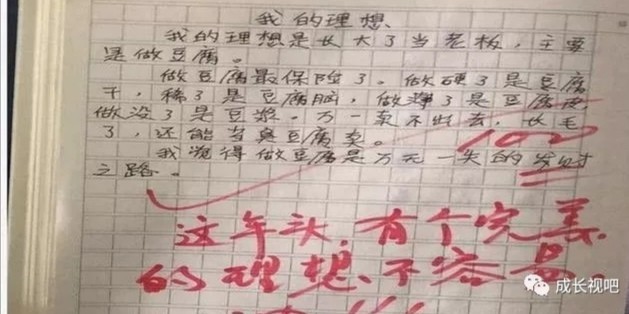 我的理想
我的理想是长大了当老板,主要
是做豆腐。
做豆腐最保险了。做硬了是豆腐
干,稀了是豆腐脑,做薄了是豆腐皮,
做没了是豆浆。万一卖不出去,长毛
了,还能当臭豆腐卖。
100
我觉得做豆腐是万无一失的发财
之路。
这年头,有个完美
的理想、不容易.
成长视吧